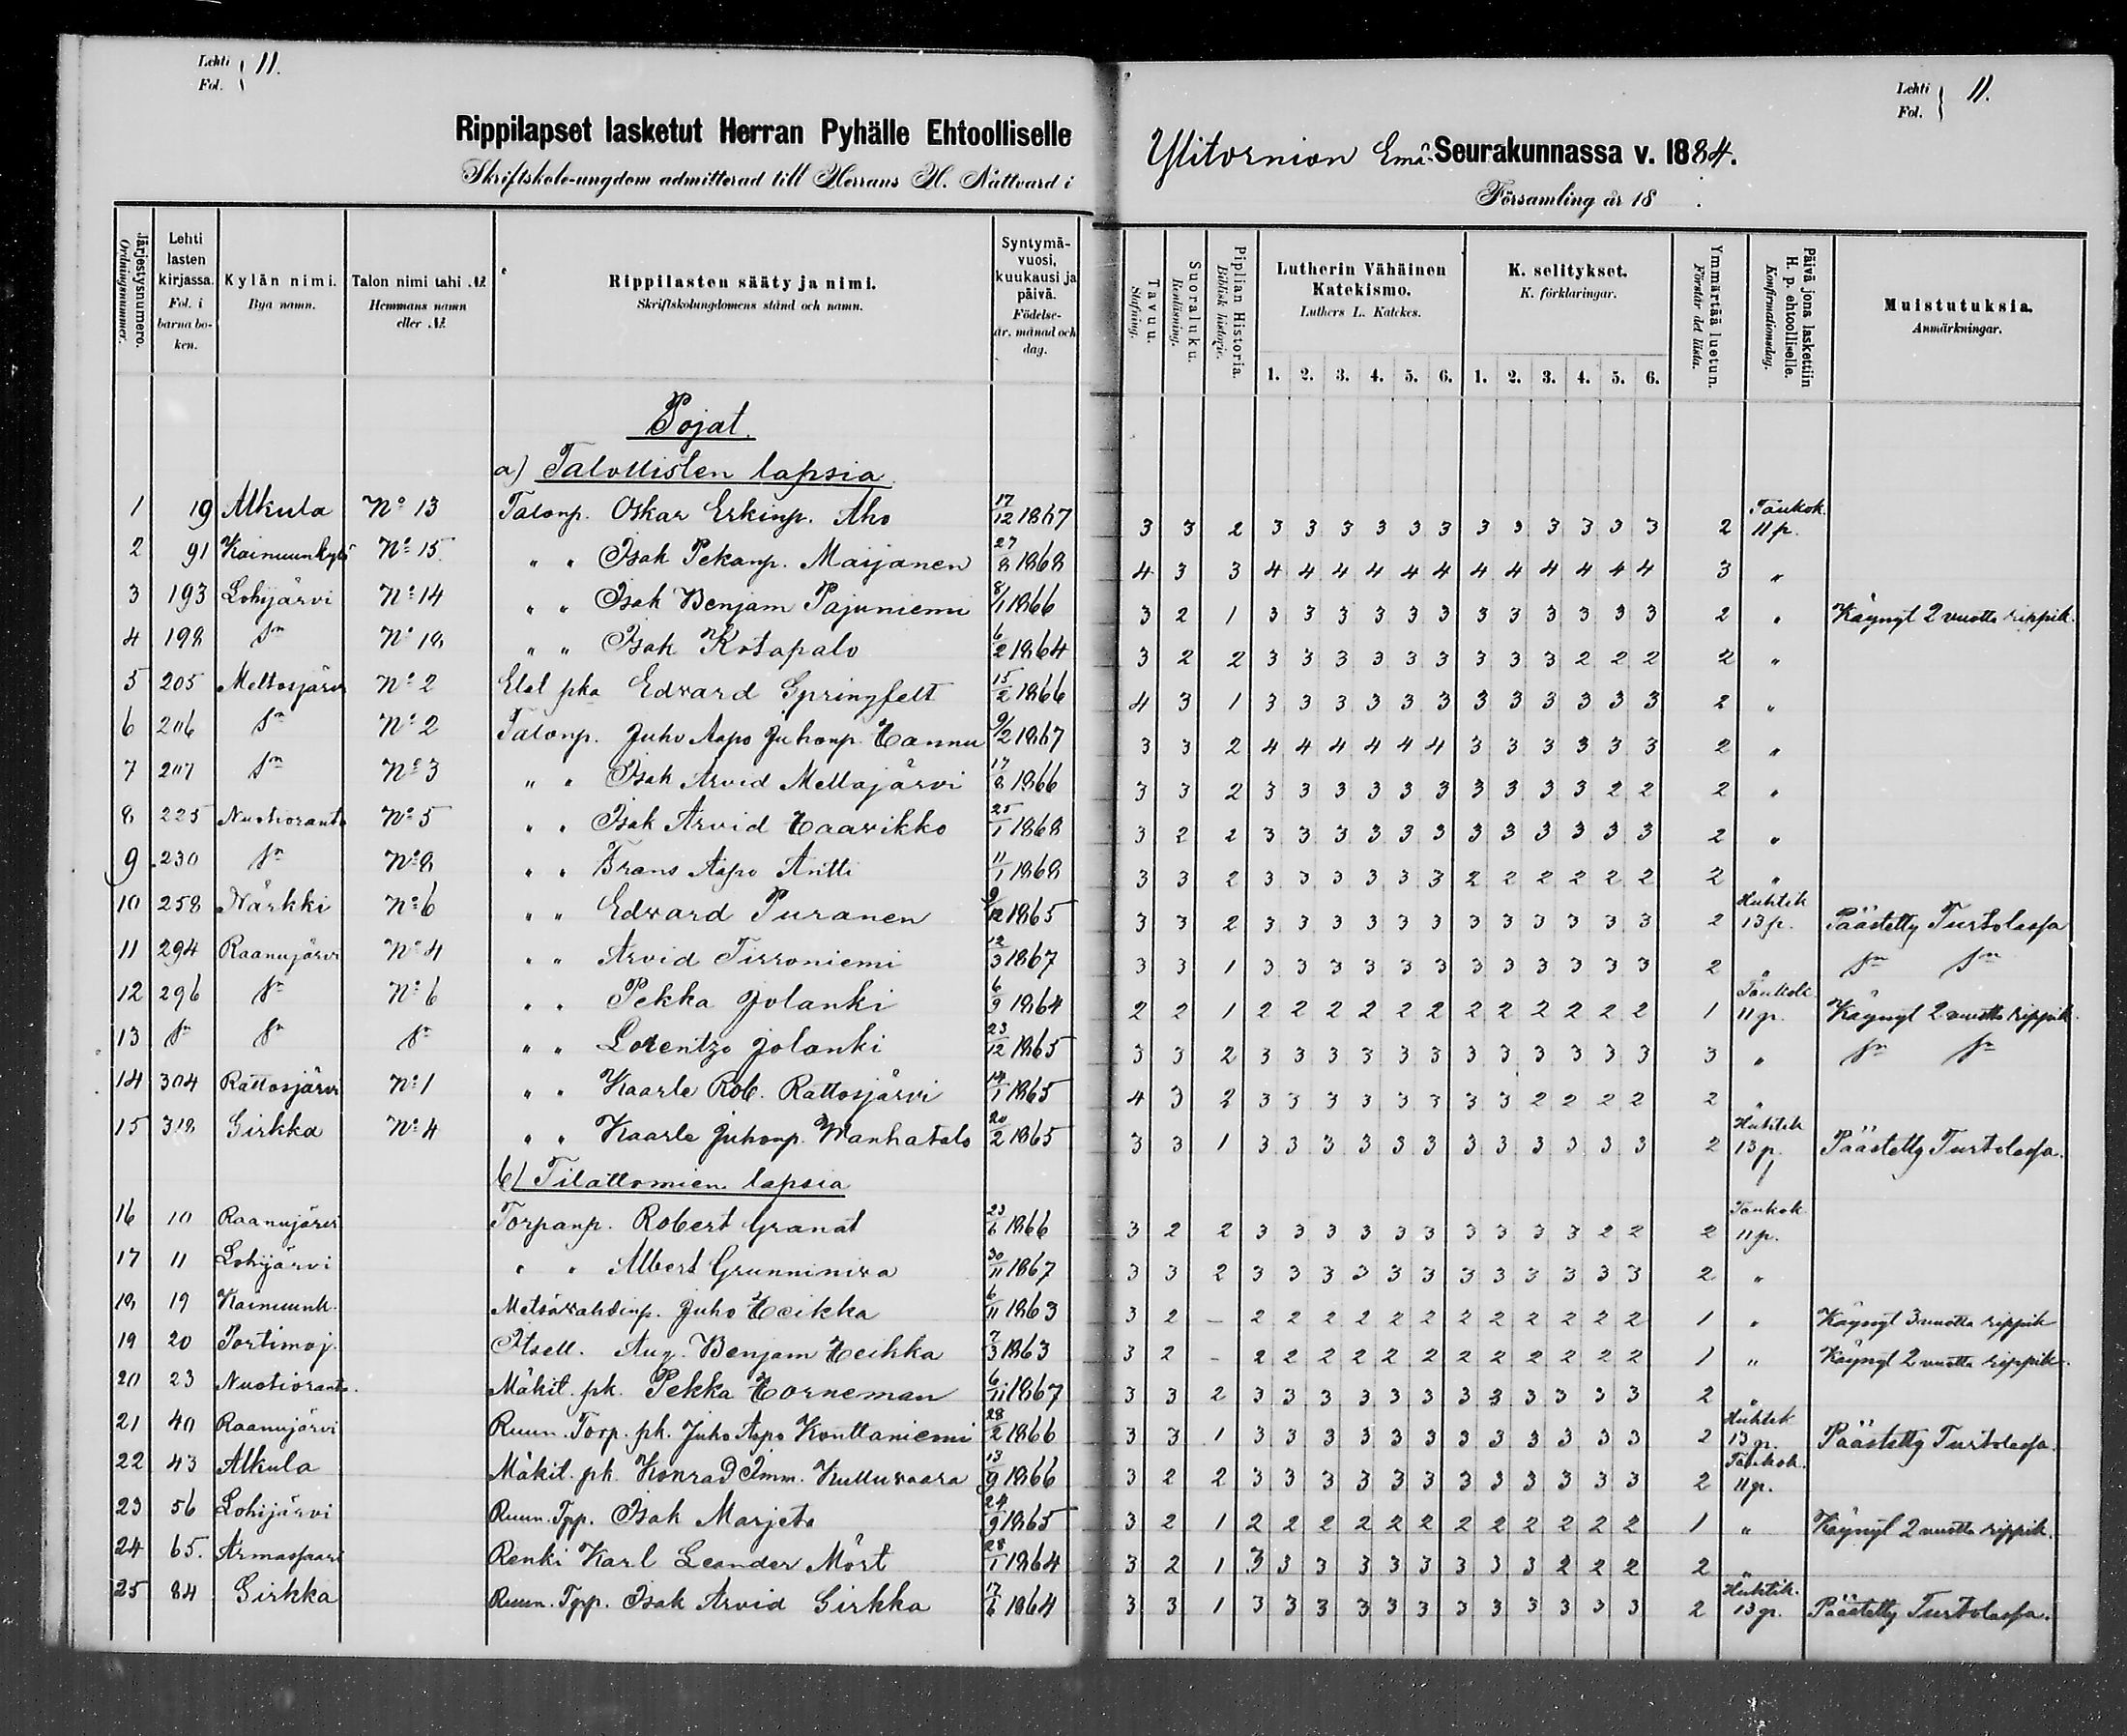 Lehti Fol. 11.
Rippilapset lasketut Herran Pyhälle Ehtoolliselle
Skriftskole-ungdom admitterad till Herrans H. Nattvard i
Järjestysnumero. Ordningsnummer.
Lehti lasten kirjassa. Fol. i barna bo-ken.
Kylän nimi. Bya namn.
Talon nimi tahi №. Hemmans namn eller №.
Rippilasten sääty ja nimi. Skriftskolungdomens stånd och namn.
Syntymä-vuosi, kuukausi ja päivä. Födelse-år, månad och dag.
Pojat.
a) Talollisten lapsia
1 19 Alkula No 13 Talonp. Oskar Erkinp. Aho 17/12 1867
2 91 Kainuunkylä No 15 " " Isak Pekanp. Maijanen 27/8 1868
3 193 Lohijärvi No 14 " " Isak Benjam Pajuniemi 8/1 1866
4 198 Sn No 18 " " Isak Kotapalo 6/2 1864
5 205 Meltosjärvi No 2 Elät pka Edvard Springfelt 15/2 1866
6 206 Sn No 2 Talonp. Juho Aapo Juhonp. Hannu 9/2 1867
7 207 Sn No 3 " " Isak Arvid Mellajärvi 17/8 1866
8 225 Nuotioranta No 5 " " Isak Arvid Haavikko 25/1 1868
9 230 Sn No 8 " " Frans Aapo Antti 11/1 1868
10 258 Närkki No 6 " " Edvard Puranen 9/12 1865
11 294 Raanujärvi No 4 " " Arvid Tirroniemi 12/3 1867
12 296 Sn No 6 " " Pekka Jolanki 6/9 1864
13 Sn Sn Sn " " Lorentzo Jolanki 23/12 1865
14 304 Rattosjärvi No 1 " " Kaarle Rob. Rattosjärvi 14/1 1865
15 318 Girkka No 4 " " Kaarle Juhonp. Wanhatalo 20/2 1865
b) Tilattomien lapsia
16 10 Raanujärvi Torpanp. Robert Granat 23/6 1866
17 11 Lohijärvi " " Albert Grunniniva 30/11 1867
18 19 Kainuunk. Metsävahdinp. Juho Heikka 6/11 1863
19 20 Portimoj. Itsell. Aug. Benjam Heikka 7/3 1863
20 23 Nuotioranta. Mäkit. pk. Pekka Horneman 6/11 1867
21 40 Raanujärvi Ruun. Torp. pk. Juho Aapo Konttaniemi 28/2 1866
22 43 Alkula Mäkit. pk. Konrad Imm. Kulluvaara 13/9 1866
23 56 Lohijärvi Ruun. Tpp. Isak Marjeta 24/9 1865
24 65. Armassaari Renki Karl Leander Mört 28/1 1864
25 84 Girkka Ruun. Tpp. Isak Arvid Girkka 17/6 1864
Lehti Fol. 11.
Ylitornion Emä Seurakunnassa v. 1884.
Församling år 18 .
Tavuu. Stafning.
Suoraluku. Renläsning.
Piplian Historia. Biblisk historie.
Lutherin Vähäinen Katekismo. Luthers L. Katekes.
K. selitykset. K. förklaringar.
Ymmärtää luetun. Förstår det lästa.
Päivä jona laskettiin H. p. ehtoolliselle. Konfirmationsdag.
Muistutuksia. Anmärkningar.
1. 2. 3. 4. 5. 6. 1. 2. 3. 4. 5. 6.
3 3 2 3 3 3 3 3 3 3 3 3 3 3 3 2 Toukok. 11 p.
4 3 3 4 4 4 4 4 4 4 4 4 4 4 4 3 "
3 2 1 3 3 3 3 3 3 3 3 3 3 3 3 2 " Käynyt 2 vuotta rippik.
3 2 2 3 3 3 3 3 3 3 3 3 2 2 2 2 "
4 3 1 3 3 3 3 3 3 3 3 3 3 3 3 2 "
3 3 2 4 4 4 4 4 4 3 3 3 3 3 3 2 "
3 3 2 3 3 3 3 3 3 3 3 3 3 2 2 2 "
3 2 2 3 3 3 3 3 3 3 3 3 3 3 3 2 "
3 3 2 3 3 3 3 3 3 2 2 2 2 2 2 2 "
3 3 2 3 3 3 3 3 3 3 3 3 3 3 3 2 Huhtik 13 p. Päästetty Turtolassa
3 3 1 3 3 3 3 3 3 3 3 3 3 3 3 2 " Sn Sn
2 2 1 2 2 2 2 2 2 2 2 2 2 2 2 1 Toukok 11 p. Käynyt 2 vuotta rippik.
3 3 2 3 3 3 3 3 3 3 3 3 3 3 3 3 " Sn Sn
4 3 2 3 3 3 3 3 3 3 3 2 2 2 2 2 "
3 3 1 3 3 3 3 3 3 3 3 3 3 3 3 2 Huhtik 13 p. Päästetty Turtolassa.
3 2 2 3 3 3 3 3 3 3 3 3 3 2 2 2 Toukok 11 p.
3 3 2 3 3 3 3 3 3 3 3 3 3 3 3 2 "
3 2 – 2 2 2 2 2 2 2 2 2 2 2 2 1 " Käynyt 3 vuotta rippik
3 2 - 2 2 2 2 2 2 2 2 2 2 2 2 1 " Käynyt 2 vuotta rippik.
3 3 2 3 3 3 3 3 3 3 3 3 3 3 3 2 "
3 3 1 3 3 3 3 3 3 3 3 3 3 3 3 2 Huhtik 13 p. Päästetty Turtolassa.
3 2 2 3 3 3 3 3 3 3 3 3 3 3 3 2 Toukok. 11 p.
3 2 1 2 2 2 2 2 2 2 2 2 2 2 2 1 " Käynyt 2 vuotta rippik.
3 2 1 3 3 3 3 3 3 3 3 3 2 2 2 2 "
3 3 1 3 3 3 3 3 3 3 3 3 3 3 3 2 Huhtik. 13 p. Päästetty Turtolassa.